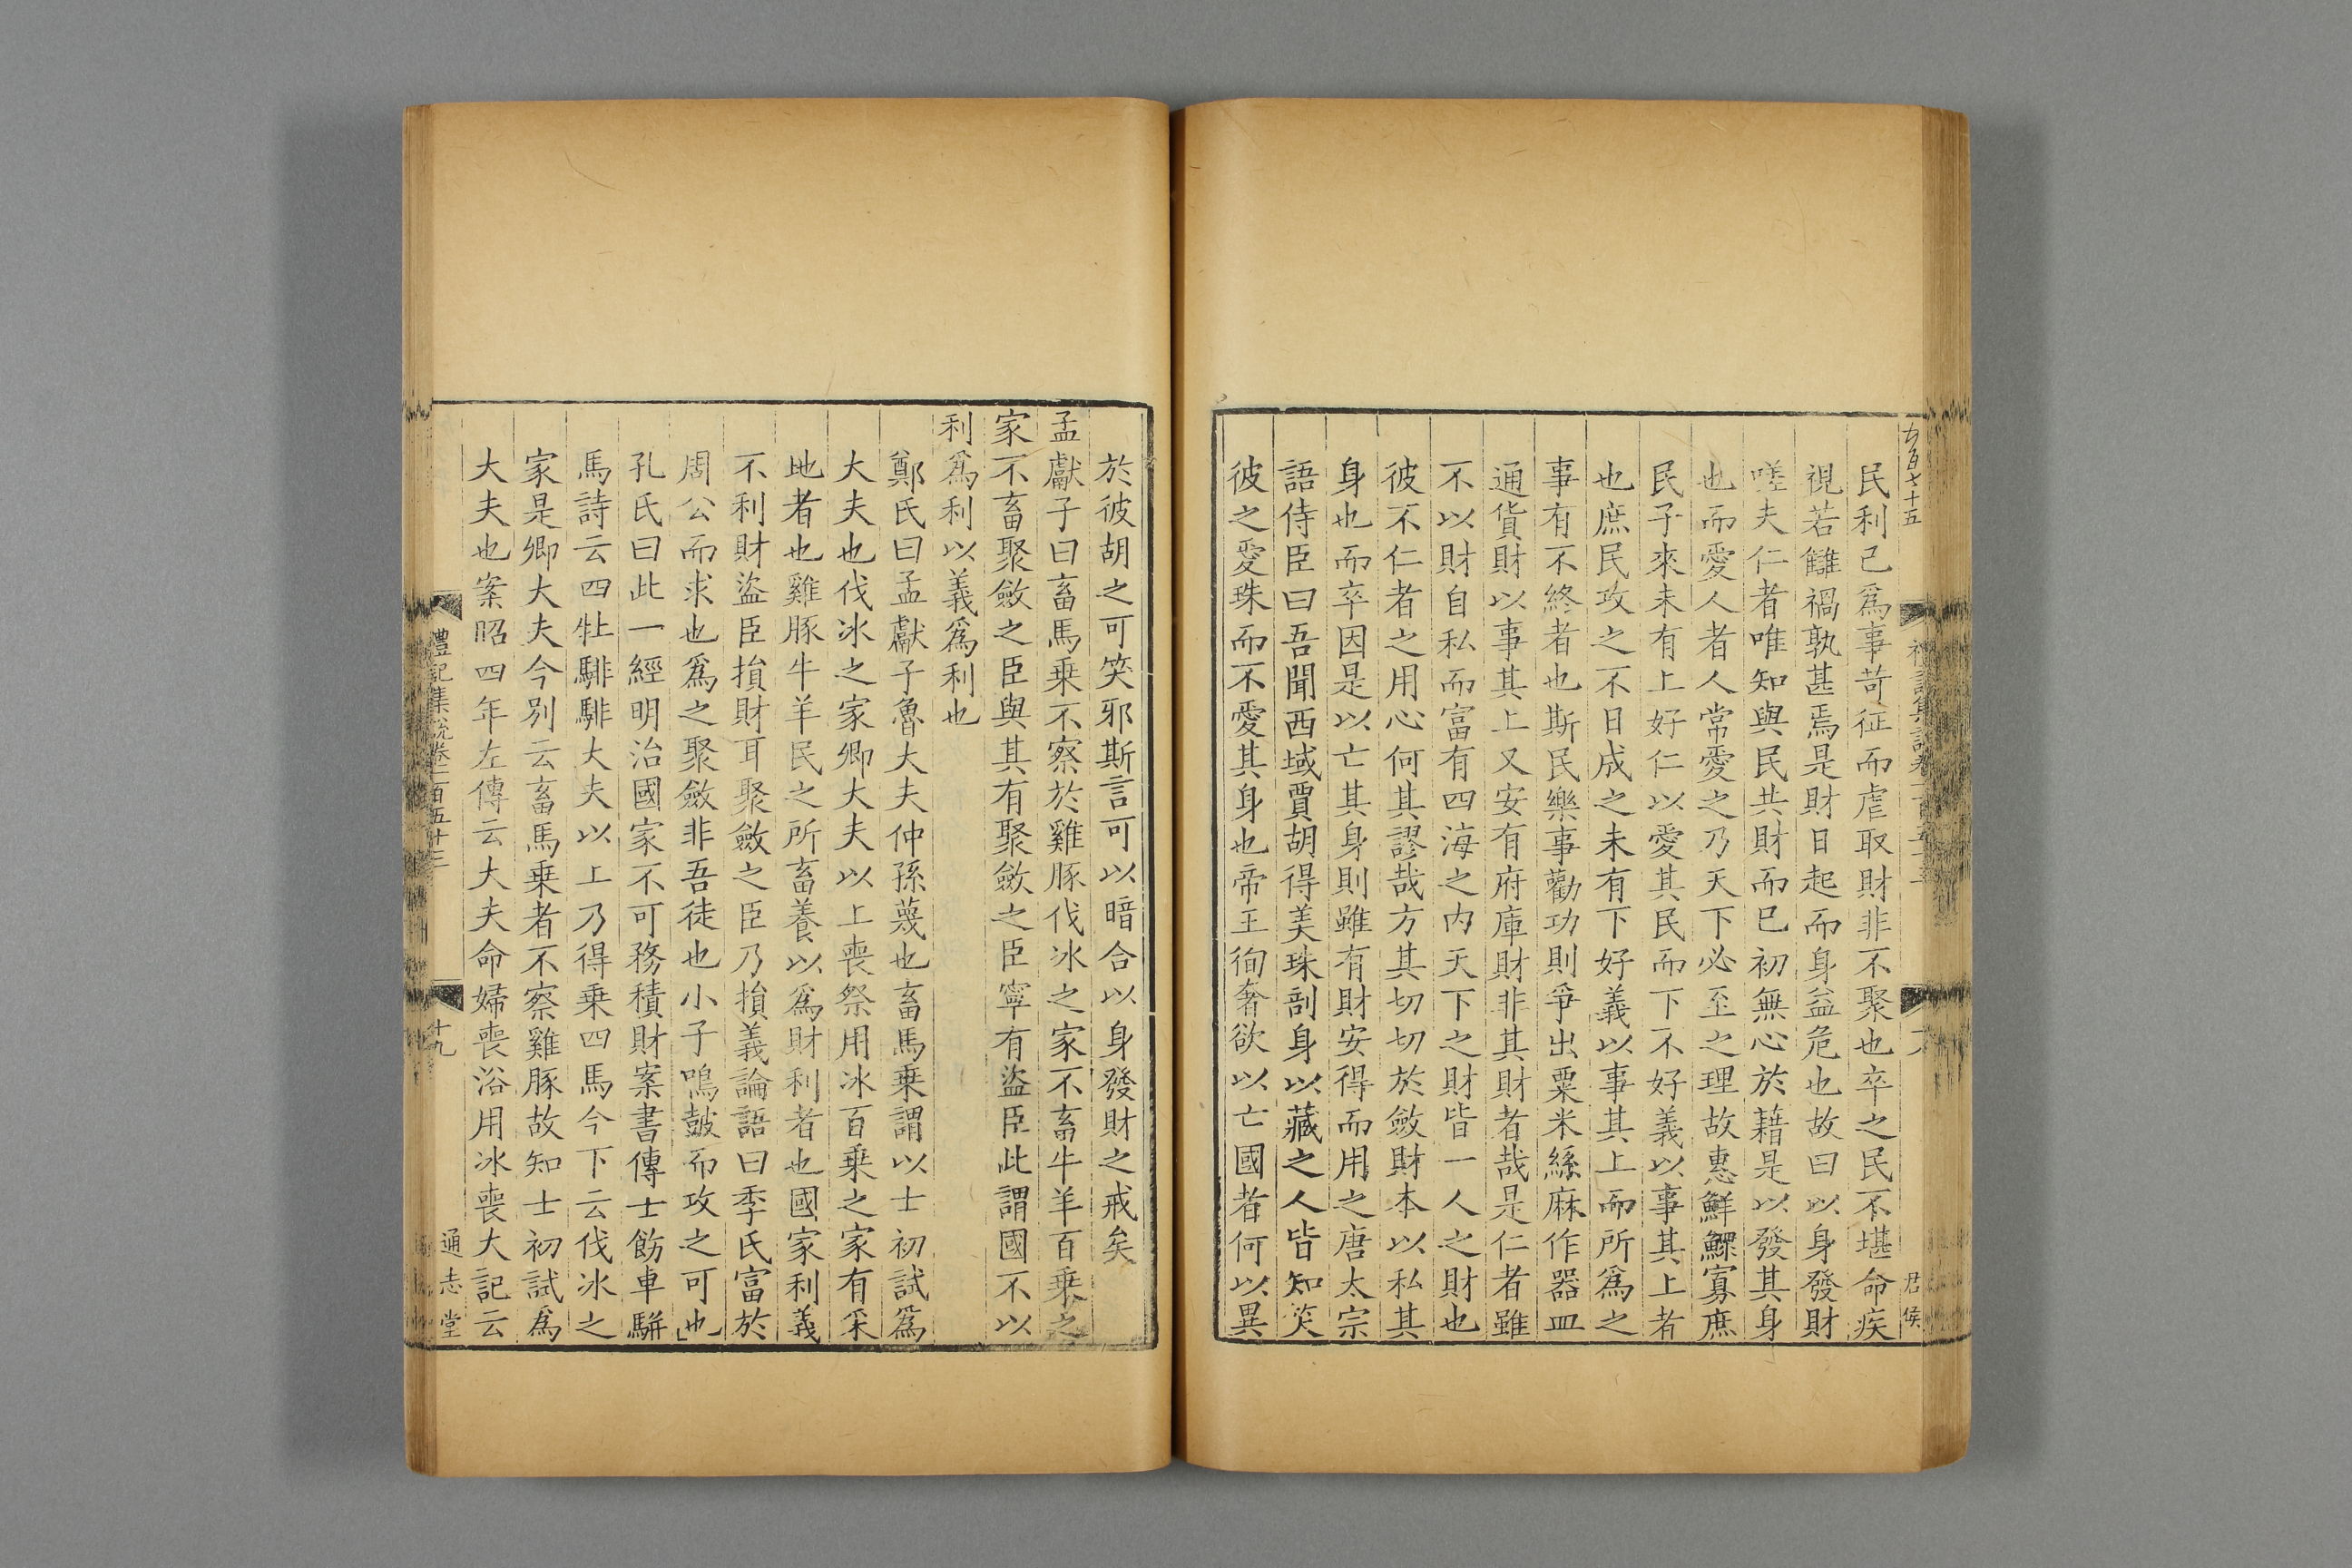 民利已爲事苛征而虐取財非不聚也卒之民不堪命疾
視若讎禍孰甚焉是財日起而身益危也故曰以身發財
嗟夫仁者唯知與民共財而已初無心於藉是以發其身
也而愛人者人常愛之乃天下必至之理故惠鮮鰥寡庶
民子來未有上好仁以愛其民而下不好義以事其上者
也庶民攻之不日成之未有下好義以事其上而所爲之
事有不終者也斯民樂事勸功則爭出粟米絲麻作器皿
通貨財以事其上又安有府庫財非其財者哉是仁者雖
不以財自私而富有四海之内天下之財皆一人之財也
彼不仁者之用心何其謬哉方其切切於斂財本以私其
身也而卒因是以亡其身則雖有財安得而用之唐太宗
語侍臣曰吾聞西域賈胡得美珠剖身以藏之人皆知笑
彼之愛珠而不愛其身也帝王徇奢欲以亡國者何以異
君侯
於彼胡之可笑邪斯言可以暗合以身發財之戒矣
孟獻子曰畜馬乗不察於雞豚伐冰之家不畜牛羊百乗之
家不畜聚斂之臣與其有聚斂之臣寧有盜臣此謂國不以
利爲利以義爲利也
鄭氏曰孟獻子魯大夫仲孫蔑也畜馬乗謂以士初試爲
大夫也伐冰之家卿大夫以上喪祭用冰百乗之家有采
地者也雞豚牛羊民之所畜養以爲財利者也國家利義
不利財盜臣損財耳聚斂之臣乃損義論語曰季氏富於
周公而求也爲之聚斂非吾徒也小子鳴鼓而攻之可也
孔氏曰此一經明治國家不可務積財案書傳士飾車駢
馬詩云四牡騑騑大夫以上乃得乗四馬今下云伐冰之
家是卿大夫今別云畜馬乗者不察雞豚故知士初試爲
大夫也案昭四年左傳云大夫命婦喪浴用冰喪大記云
禮記集說卷一百五十三
十九
通志堂